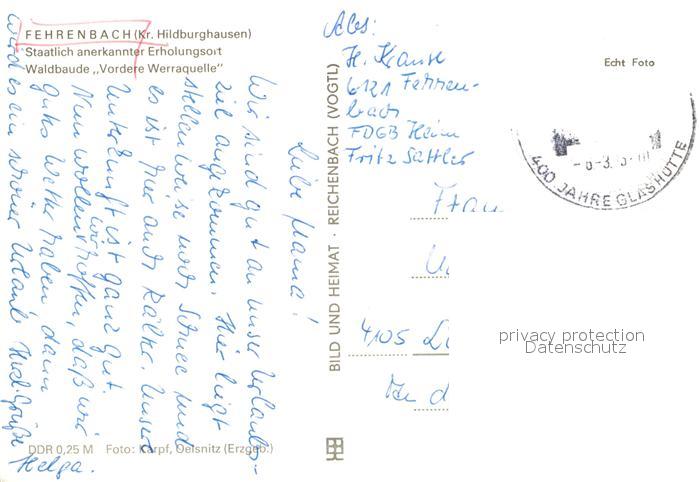 FEHRENBACH (Kr. Hildburghausen)
Staatlich anerkannter Erholungsort
Waldbaude „Vordere Werraquelle"
Liebe Mama!
Wir sind gut an unser Urlaubs-
ziel angekommen. Hier liegt
stellenweise noch Schnee und
es ist hier auch Kälte. Unsere
Unterkunft ist ganz gut.
Nun wollen wir hoffen, daß wir
gutes Wetter haben dann
wird es ein schöner Urlaub. Herzl. Grüße
Helga.
DDR 0,25 M Foto: Karpf, Oelsnitz (Erzgeb.)
BILD UND HEIMAT · REICHENBACH (VOGTL)
Abs:
H. Krause
6121 Fehren-
bach
FDGB Heim
Fritz Sattler
Echt Foto
400 JAHRE GLASHÜTTE
Frau
4105
privacy protection
Datenschutz